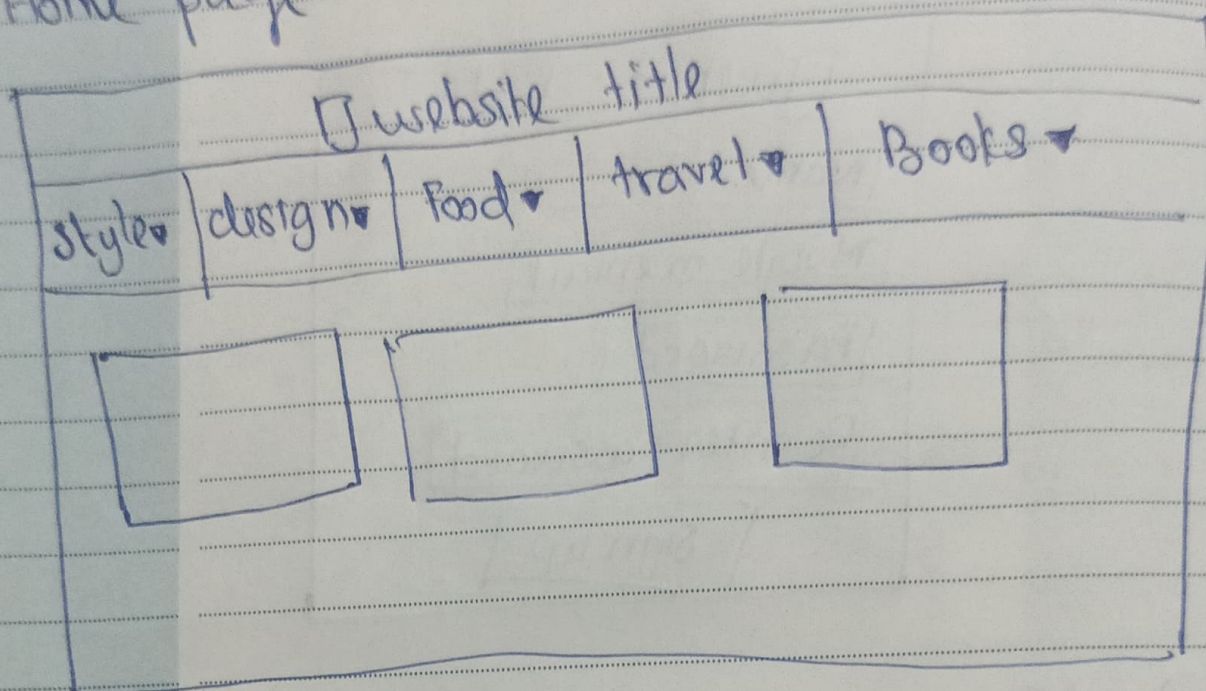 Home page
website title
style design Food travel Books